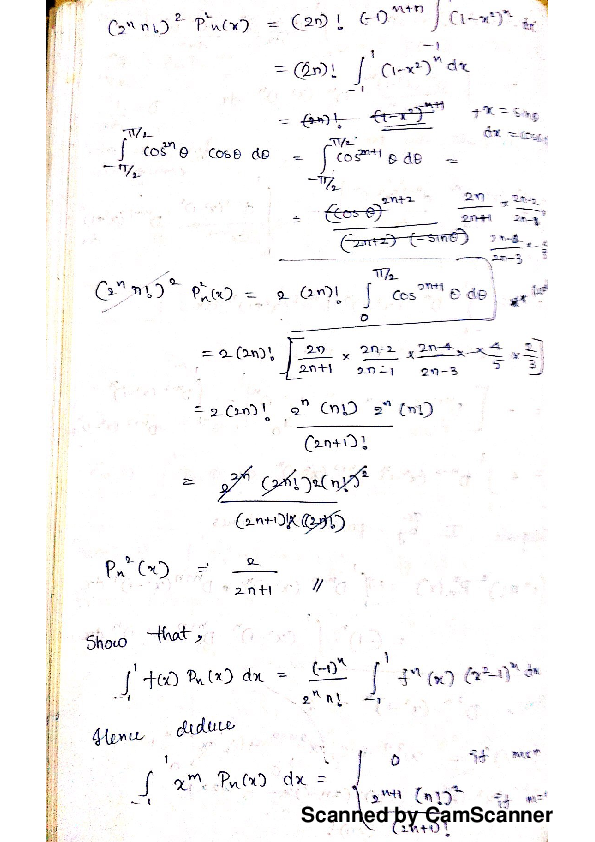 (2ⁿ n!)² P²n(x) = (2n)! (-1)ⁿ⁺ⁿ ∫ (1-x²)ⁿ dx
= (2n)! ∫₋₁¹ (1-x²)ⁿ dx
= (2n)! (1-x²)ⁿ⁺¹
∫_{-π/2}^{π/2} cos²ⁿθ cosθ dθ = ∫_{-π/2}^{π/2} cos²ⁿ⁺¹ θ dθ =
= ((cos θ)²ⁿ⁺² / (2n+2) (-sinθ)) 2n/2n+1
(2ⁿ n!)² P²n(x) = 2 (2n)! ∫₀^{π/2} cos²ⁿ⁺¹ θ dθ
= 2 (2n)! [2n/2n+1 × 2n-2/2n-1 × 2n-4/2n-3 × - × 4/5 × 2/3]
= 2 (2n)! 2ⁿ (n!) 2ⁿ (n!) / (2n+1)!
= 2²ⁿ (2n!) 2(n!)² / (2n+1) (2n!)
Pn²(x) = 2 / 2n+1 //
Show that,
∫₋₁¹ f(x) Pn(x) dx = (-1)ⁿ / 2ⁿ n! ∫₋₁¹ fⁿ(x) (x²-1)ⁿ dx
Hence deduce
∫₋₁¹ xᵐ Pn(x) dx = { 0 if
2ⁿ⁺¹ (n!)² / (2n+1)! if
Scanned by CamScanner